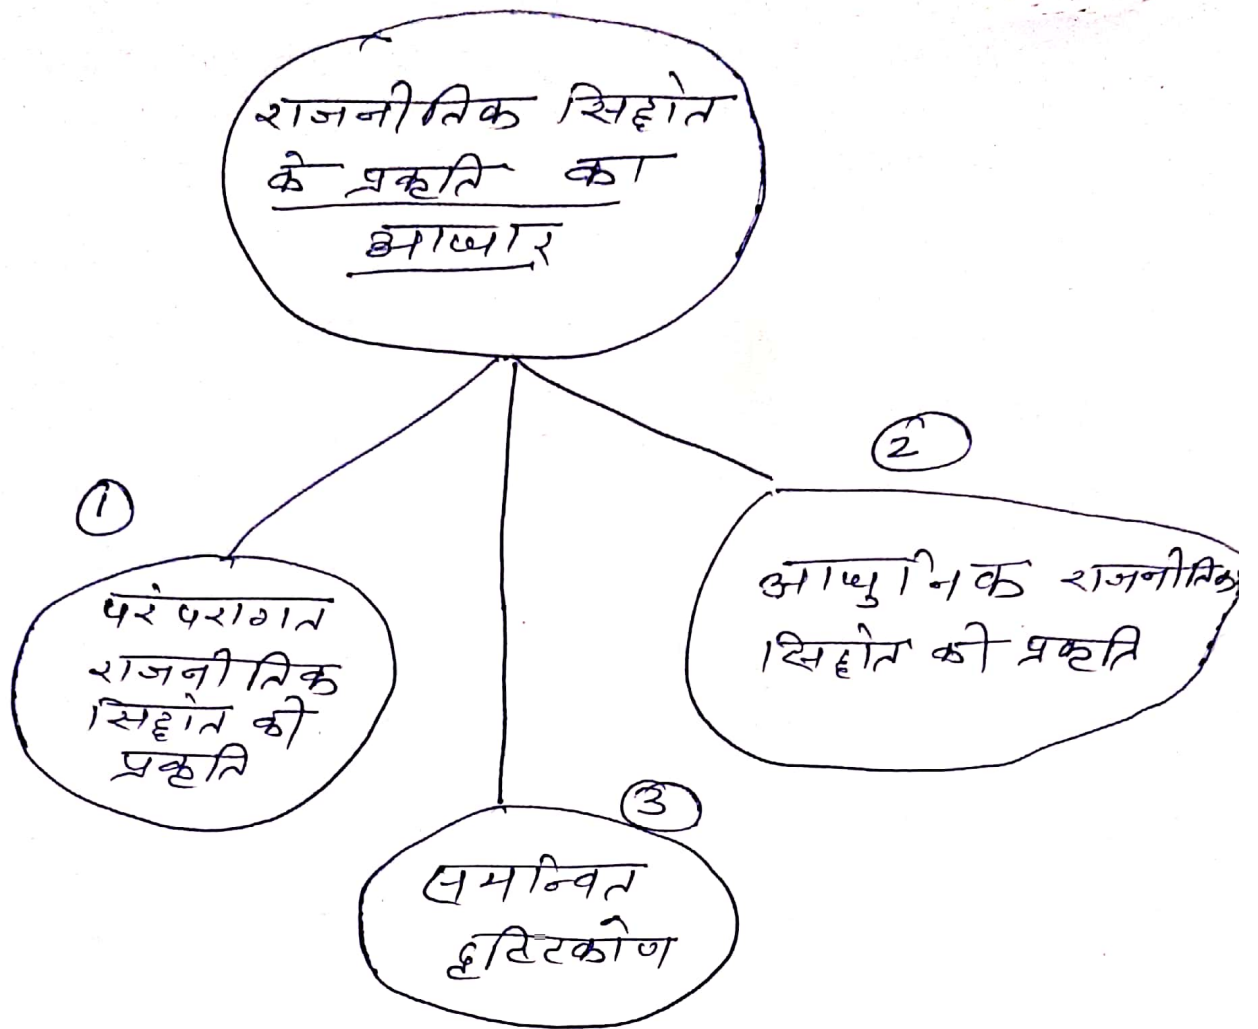 राजनीतिक सिद्धांत
के प्रकृति का
आधार
1
परंपरागत
राजनीतिक
सिद्धांत की
प्रकृति
2
आधुनिक राजनीतिक
सिद्धांत की प्रकृति
3
समन्वित
दृष्टिकोण